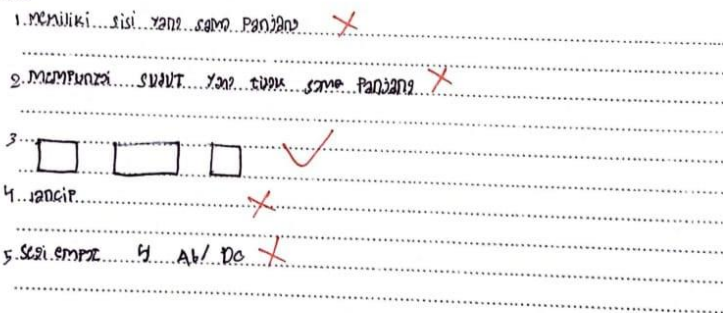 1. memiliki sisi yang sama panjang
2. mempunyai sudut yang tidak sama panjang
3
4. lancip
5. segi empat 4 Ab/ DC